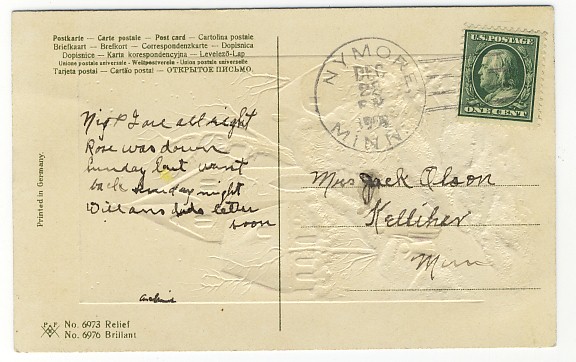 Postkarte — Carte postale — Post card — Cartolina postale
Briefkaart — Brefkort — Correspondenzkarte — Dopisnica
Dopisnice — Karta korespondencyjna — Levelező-Lap
Unione postale universale - Weltpostverein - Union postale universelle
Tarjeta postal — Cartão postal — ОТКРЫТОЕ ПИСЬМО.
NYMORE
DEC
MINN.
U.S. POSTAGE
ONE CENT
& I are all right
Rose was down
Sunday but went
back Sunday night
Will ans letter
soon
Mrs Jack Olson
Kelliher
Minn
Printed in Germany.
No. 6973 Relief
No. 6976 Brillant